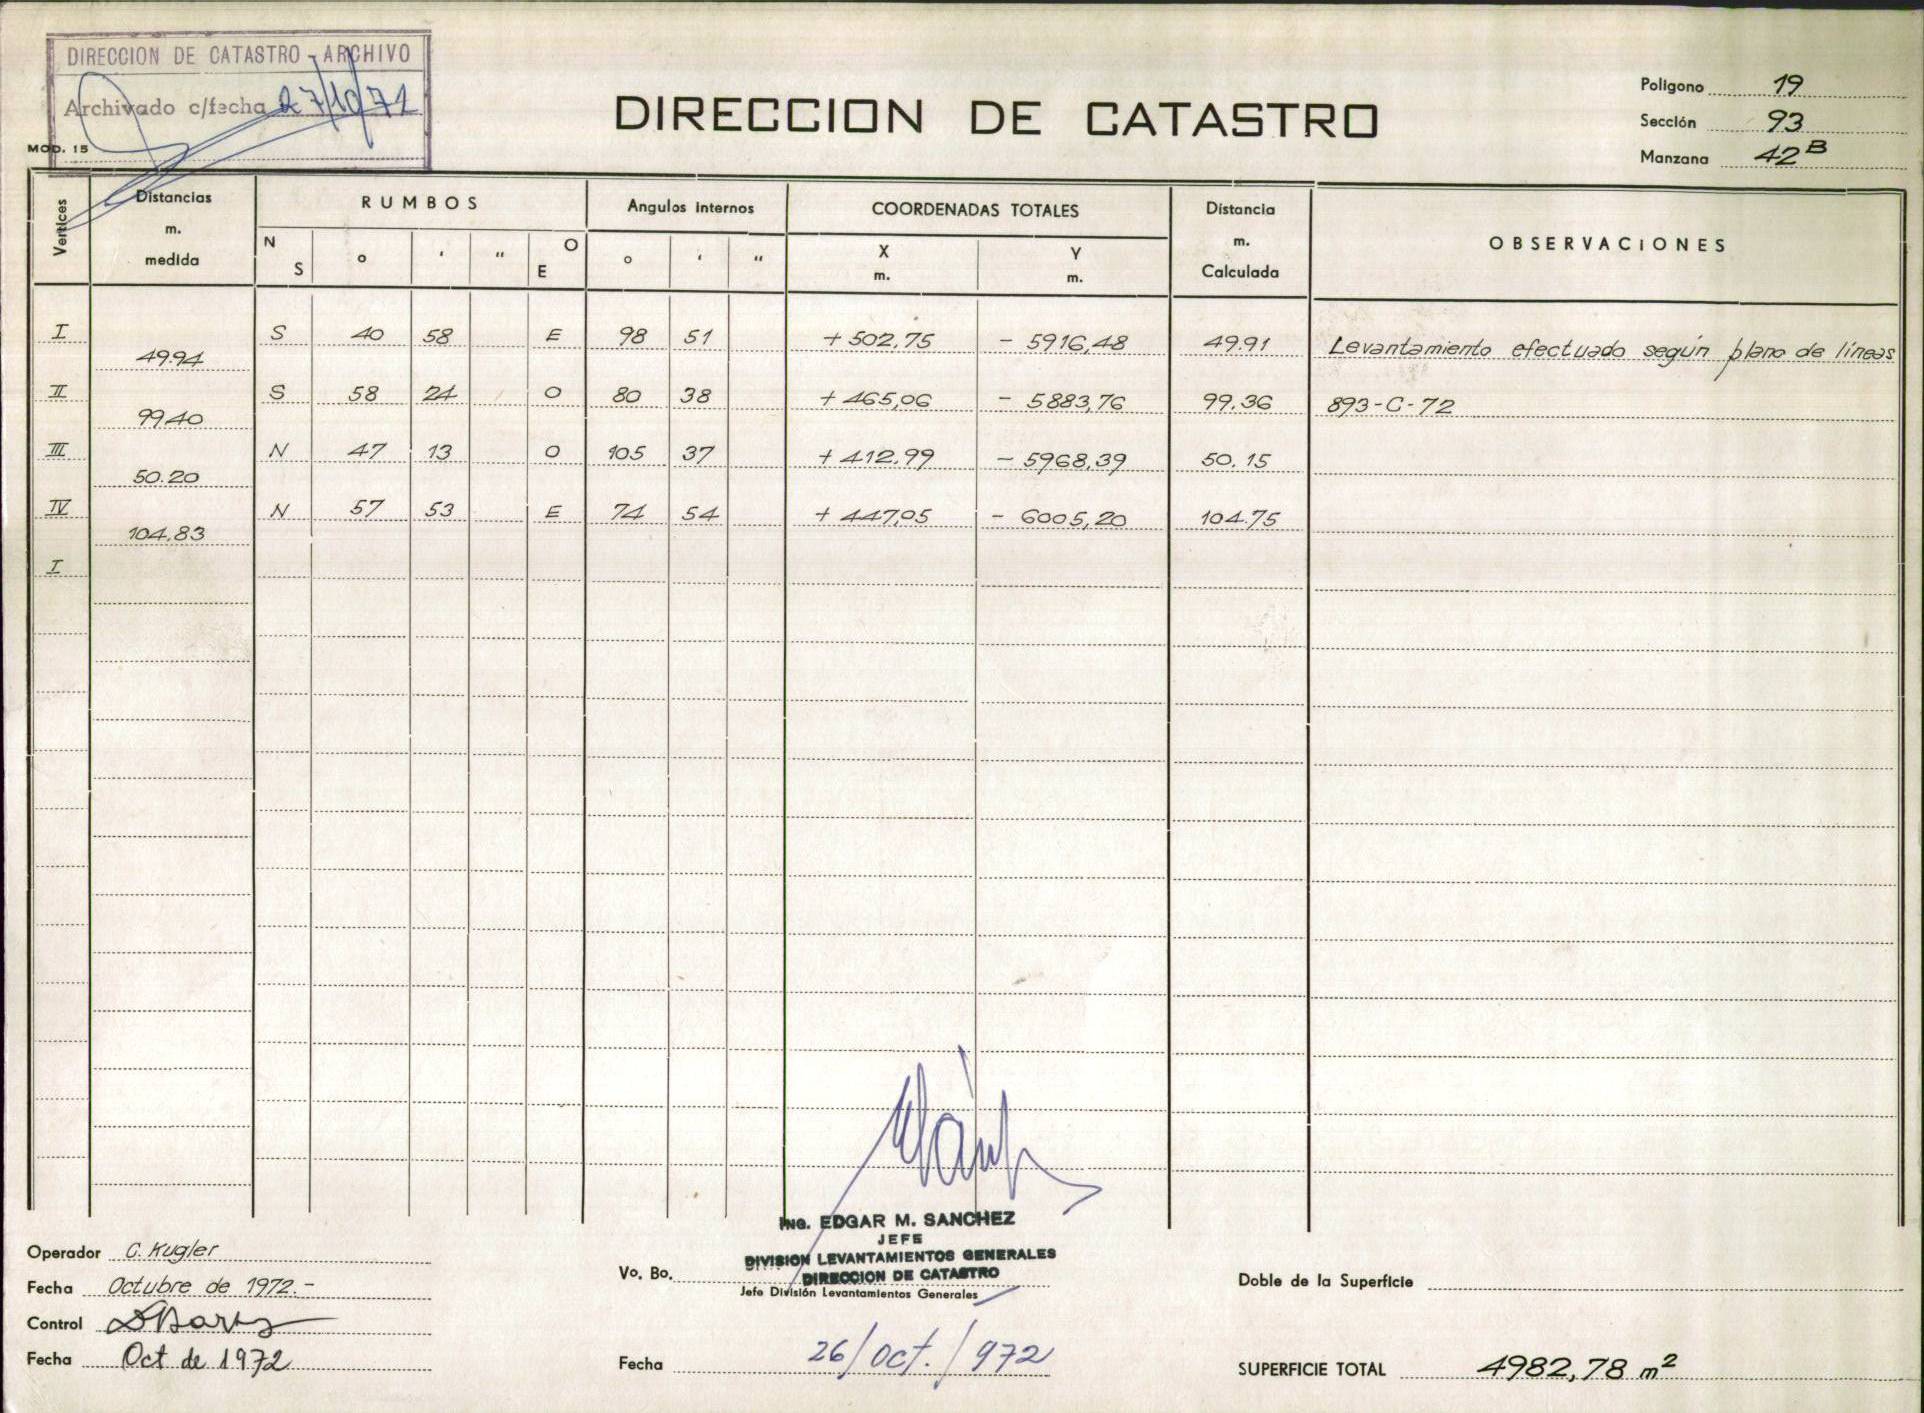 DIRECCION DE CATASTRO - ARCHIVO
Archivado c/fecha 27/10/72
MOD. 15
DIRECCION DE CATASTRO
Poligono 19
Sección 93
Manzana 42 B
Vertices Distancias m. medida RUMBOS Angulos internos COORDENADAS TOTALES Distancia m. Calculada OBSERVACIONES
N S ° ' " O E ° ' " X m. Y m.
I S 40 58 E 98 51 + 502,75 - 5916,48 49.91 Levantamiento efectuado según plano de líneas
49.94
II S 58 24 O 80 38 + 465,06 - 5883,76 99.36 893-C-72
99.40
III N 47 13 O 105 37 + 412.99 - 5968,39 50.15
50.20
IV N 57 53 E 74 54 + 447,05 - 6005,20 104.75
104.83
I
Ing. EDGAR M. SANCHEZ
JEFE
DIVISION LEVANTAMIENTOS GENERALES
DIRECCION DE CATASTRO
Vo. Bo.
Jefe División Levantamientos Generales
Fecha 26/Oct./972
Operador C. Kugler
Fecha Octubre de 1972.-
Control
Fecha Oct de 1972
Doble de la Superficie
SUPERFICIE TOTAL 4982,78 m²